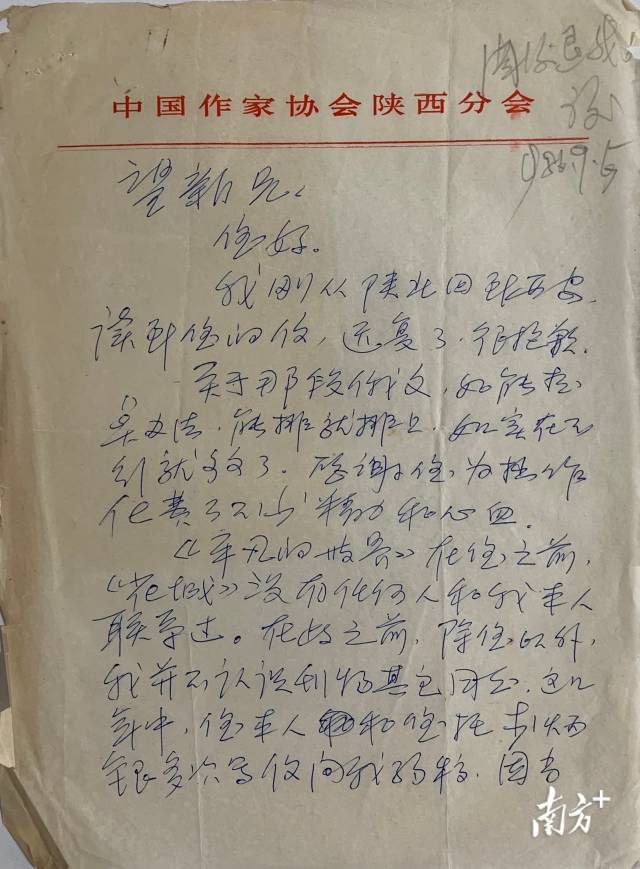 中国作家协会陕西分会
1986.9.5
望新兄:
您好。
我刚从陕北回到西安,
读到您的信,迟复了,很抱歉。
关于那段俄文,如能想
点办法,能排就排上,如实在不
行就算了。感谢您为拙作
花费了不少精力和心血。
《平凡的世界》在您之前,
《花城》没有任何人和我本人
联系过。在此之前,除您以外,
我并不认识刊物其它同志。这几
年中,您本人和您托
多次写信向我约稿,因当
南方+